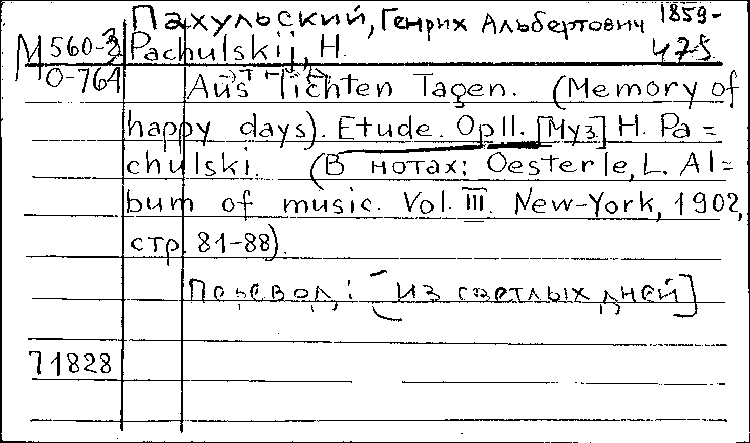 Пахульский, Генрих Альбертович 1859-
М 560-3 Pachulskij, H.
О-764 Aus lichten Tagen. (Memory of
happy days). Etude. Op11. [Муз] H. Pa=
chulski. (В нотах: Oesterle, L. Al=
bum of music. Vol. III. New-York, 1902,
стр. 81-88).
Перевод: [из светлых дней]
71828